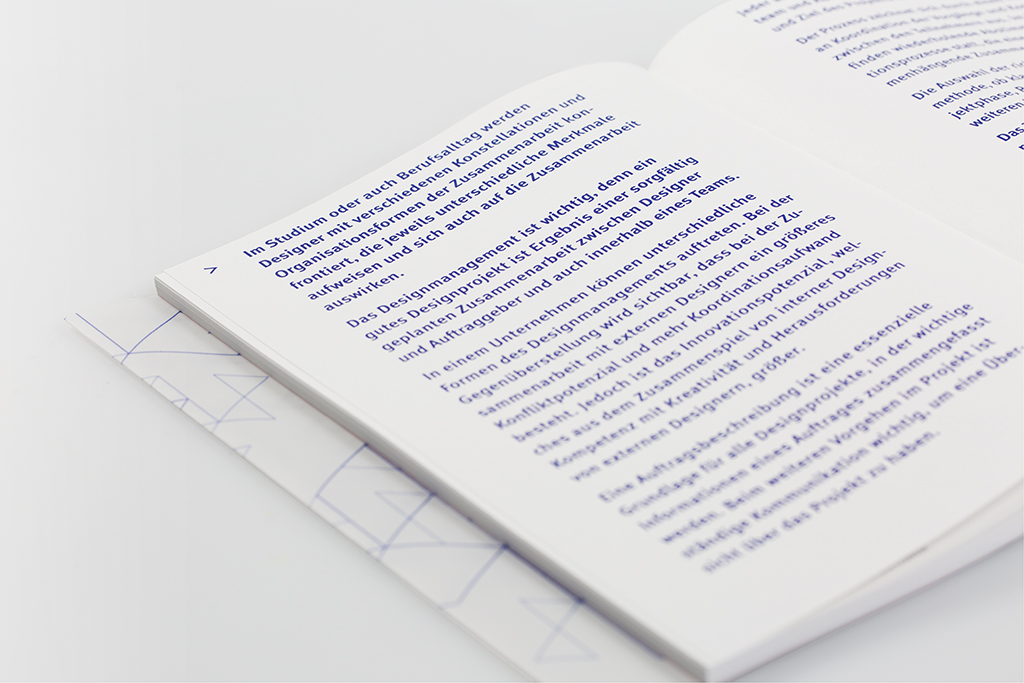 >
Im Studium oder auch Berufsalltag werden
Designer mit verschiedenen Konstellationen und
Organisationsformen der Zusammenarbeit kon-
frontiert, die jeweils unterschiedliche Merkmale
aufweisen und sich auch auf die Zusammenarbeit
auswirken.
Das Designmanagement ist wichtig, denn ein
gutes Designprojekt ist Ergebnis einer sorgfältig
geplanten Zusammenarbeit zwischen Designer
und Auftraggeber und auch innerhalb eines Teams.
In einem Unternehmen können unterschiedliche
Formen des Designmanagements auftreten. Bei der
Gegenüberstellung wird sichtbar, dass bei der Zu-
sammenarbeit mit externen Designern ein größeres
Konfliktpotenzial und mehr Koordinationsaufwand
besteht, jedoch ist das Innovationspotenzial, wel-
ches aus dem Zusammenspiel von interner Design-
Kompetenz mit Kreativität und Herausforderungen
von externen Designern, größer.
Eine Auftragsbeschreibung ist eine essenzielle
Grundlage für alle Designprojekte, in der wichtige
Informationen eines Auftrages zusammengefasst
werden. Beim weiteren Vorgehen im Projekt ist
ständige Kommunikation wichtig, um eine Über-
sicht über das Projekt zu haben.
jeder
team und
und Ziel des
Der Prozess zeichnet sich
an Koordination der Vorgänge und
zwischen den Teilnehmern aus.
finden wiederholende
tionsprozesse statt, die
menhängende
Die Auswahl der
methode, ob
jektphase,
weiteren
Das